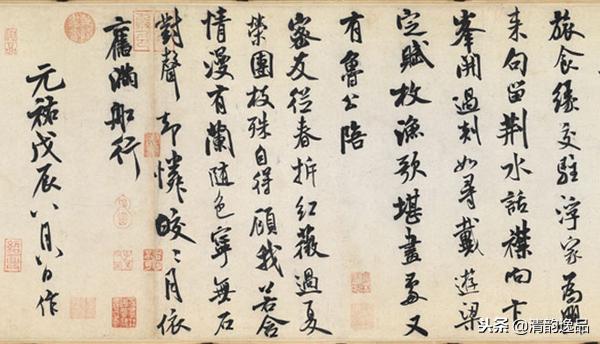 旅食緣交駐浮家為興
来句留荆水話襟向卞
峯開過剡如尋戴遊梁
定賦枚漁歌堪畫處又
有魯公陪
密友從春拆紅薇過夏
榮團枝殊自得顧我若含
情漫有蘭隨色寧無石
對聲却憐皎〻月依
舊滿船行
元祐戊辰八月八日作
头条@清韵逸品